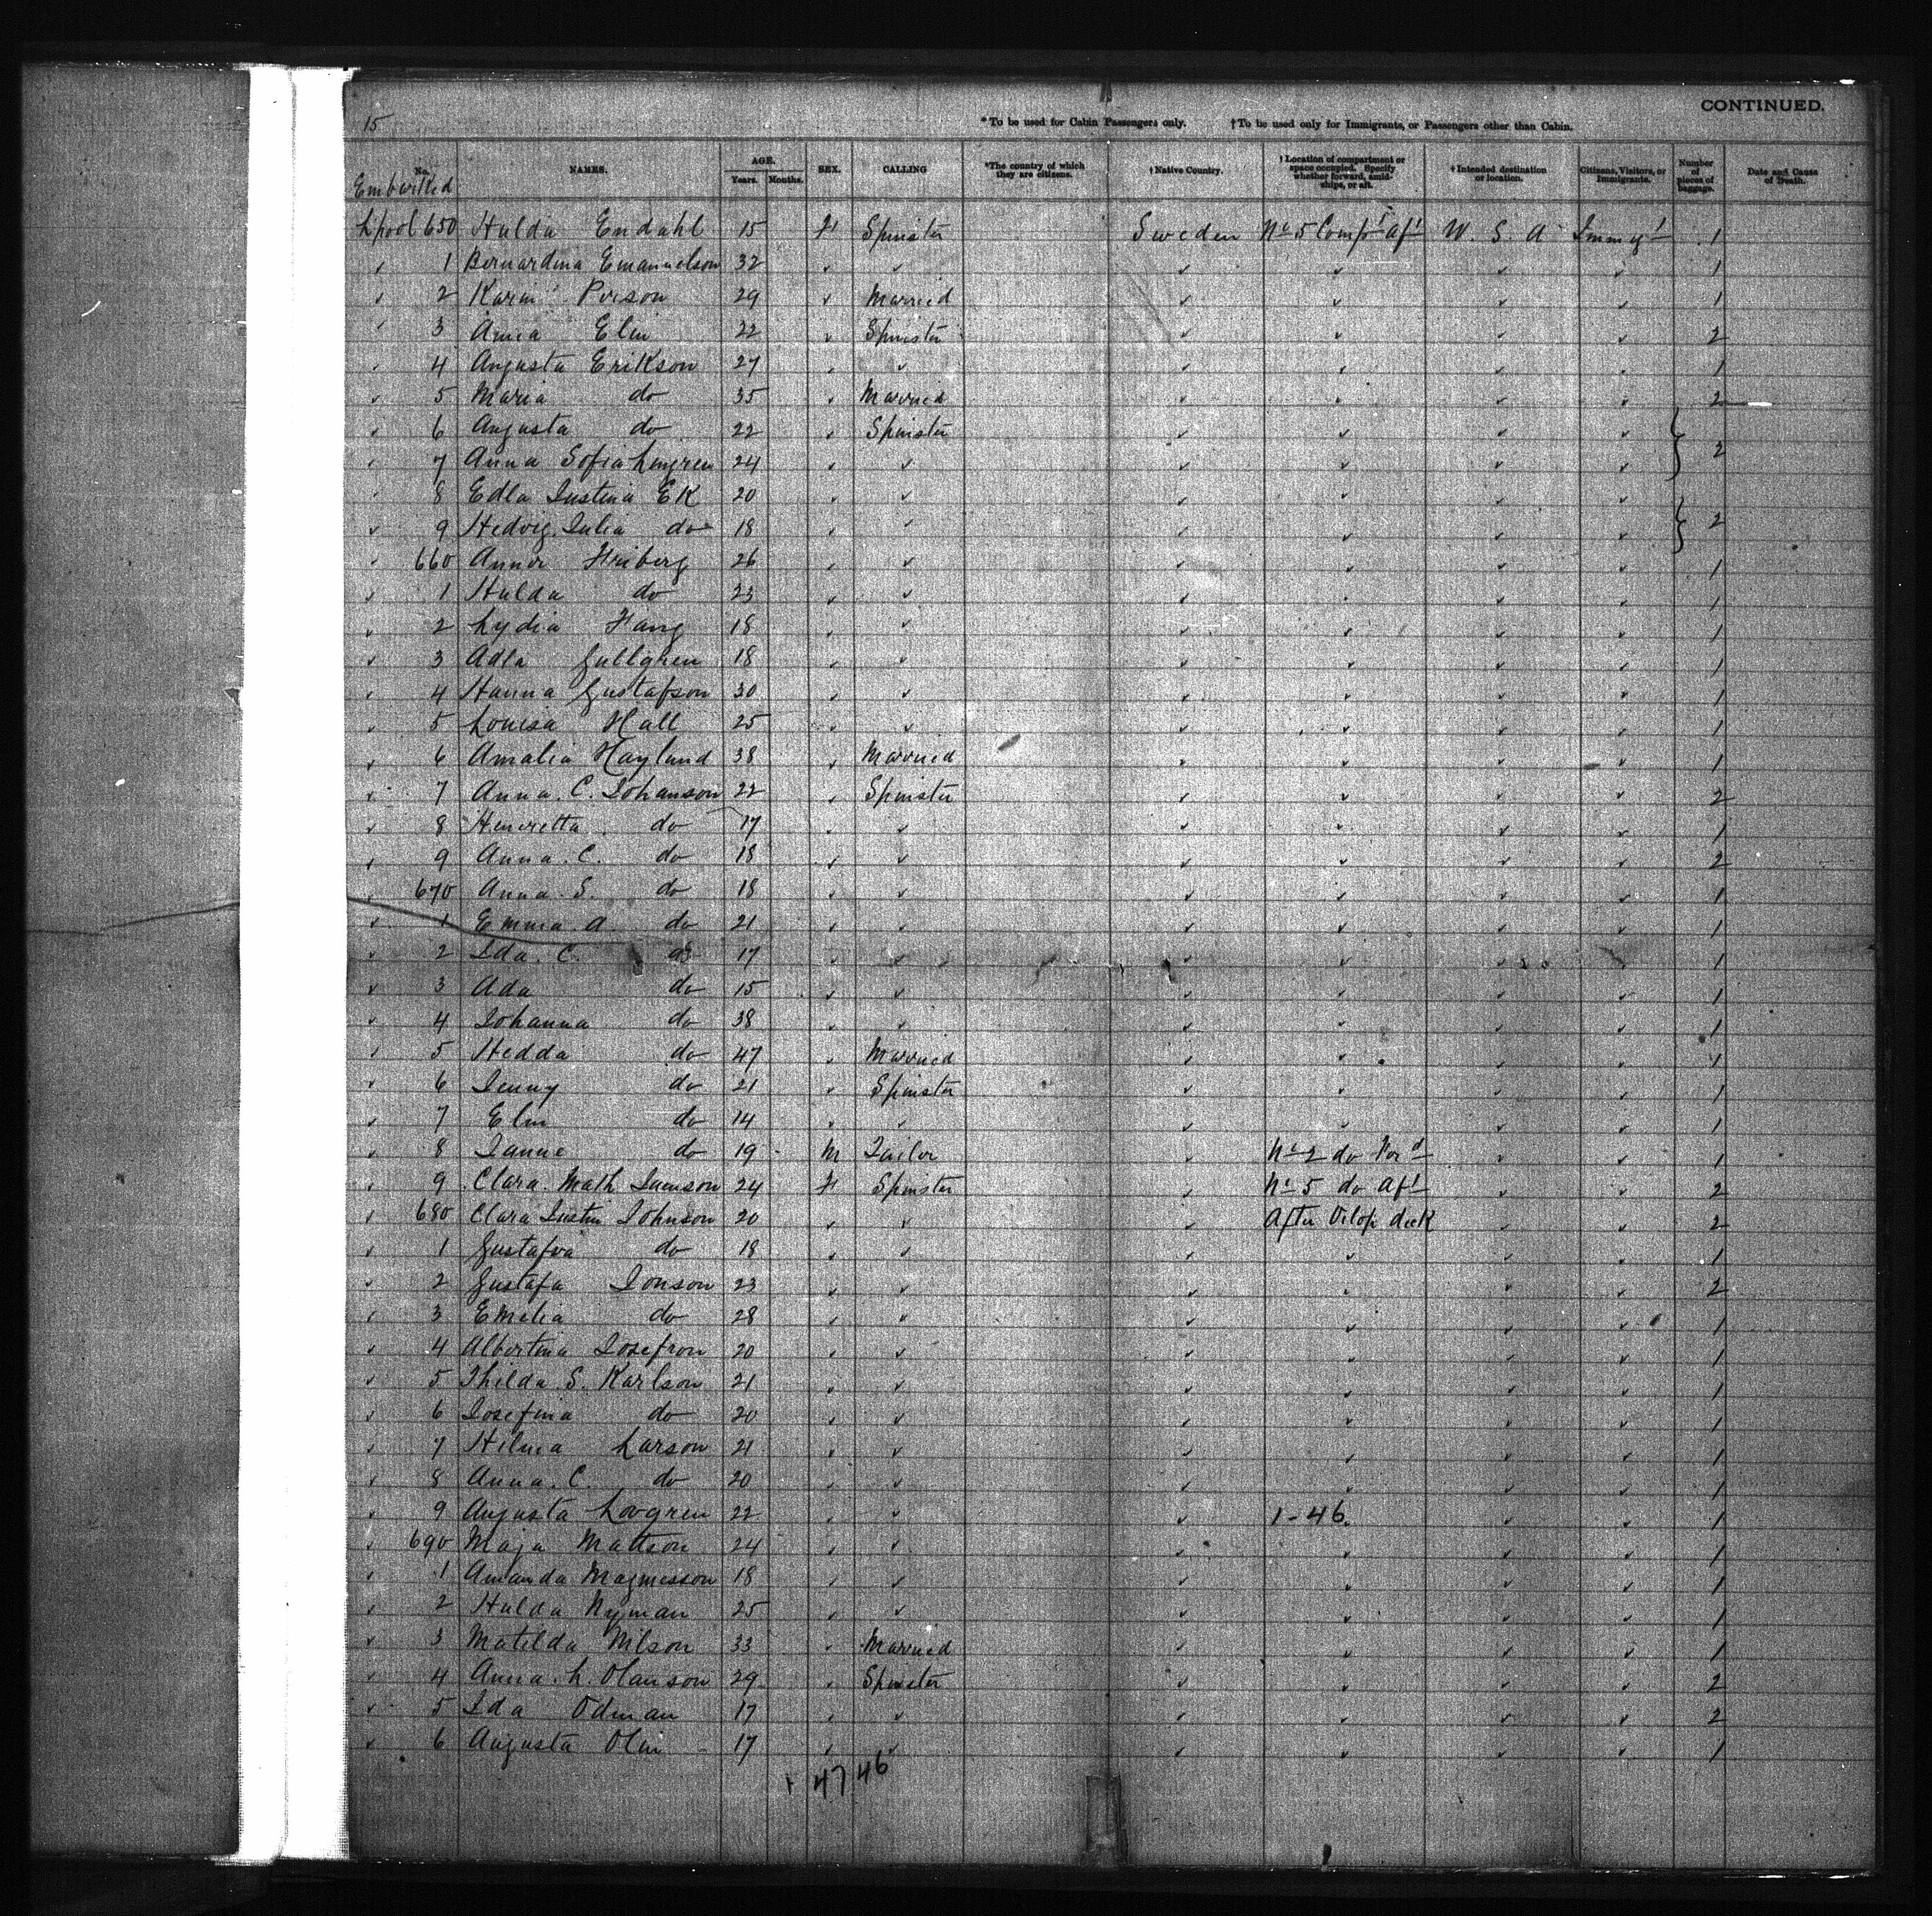 CONTINUED.
15 *To be used for Cabin Passengers only. †To be used only for Immigrants, or Passengers other than Cabin.
No. NAMES. AGE. Years. Months. SEX. CALLING *The country of which they are citizens. †Native Country. †Location of compartment or space occupied. Specify whether forward, amidships, or aft. †Intended destination or location. Citizens, Visitors, or Immigrants. Number of pieces of baggage. Date and Cause of Death.
Embarked
L'pool 650 Hulda Endahl 15 F Spinster Sweden No 5 Compt aft U. S. A Immgt 1
✓ 1 Bernardina Emanuelson 32 ✓ ✓ ✓ ✓ ✓ ✓ 1
✓ 2 Karin Person 29 ✓ Married ✓ ✓ ✓ ✓ 1
✓ 3 Anna Elin 22 ✓ Spinster ✓ ✓ ✓ ✓ 2
✓ 4 Augusta Erikson 27 ✓ ✓ ✓ ✓ ✓ ✓ 1
✓ 5 Maria do 35 ✓ Married ✓ ✓ ✓ ✓ 2
✓ 6 Augusta do 22 ✓ Spinster ✓ ✓ ✓ ✓
✓ 7 Anna Sofia Lungren 24 ✓ ✓ ✓ ✓ ✓ ✓ } 2
✓ 8 Edla Justina Ek 20 ✓ ✓ ✓ ✓ ✓ ✓
✓ 9 Hedvig Julia do 18 ✓ ✓ ✓ ✓ ✓ ✓ } 2
✓ 660 Anna Friberg 26 ✓ ✓ ✓ ✓ ✓ ✓ 1
✓ 1 Hulda do 23 ✓ ✓ ✓ ✓ ✓ ✓ 1
✓ 2 Lydia Fang 18 ✓ ✓ ✓ ✓ ✓ ✓ 1
✓ 3 Adla Gullgren 18 ✓ ✓ ✓ ✓ ✓ ✓ 1
✓ 4 Hanna Gustafson 30 ✓ ✓ ✓ ✓ ✓ ✓ 1
✓ 5 Louisa Hall 25 ✓ ✓ ✓ ✓ ✓ ✓ 1
✓ 6 Amalia Haylund 38 ✓ Married ✓ ✓ ✓ ✓ 1
✓ 7 Anna. C. Johanson 22 ✓ Spinster ✓ ✓ ✓ ✓ 2
✓ 8 Henretta do 17 ✓ ✓ ✓ ✓ ✓ ✓ 1
✓ 9 Anna. C. do 18 ✓ ✓ ✓ ✓ ✓ ✓ 2
✓ 670 Anna. S. do 18 ✓ ✓ ✓ ✓ ✓ ✓ 1
✓ 1 Emma A. do 21 ✓ ✓ ✓ ✓ ✓ ✓ 1
✓ 2 Ida. C. do 17 ✓ ✓ ✓ ✓ ✓ ✓ 1
✓ 3 Ada do 15 ✓ ✓ ✓ ✓ ✓ ✓ 1
✓ 4 Johanna do 38 ✓ ✓ ✓ ✓ ✓ ✓ 1
✓ 5 Hedda do 47 ✓ Married ✓ ✓ ✓ ✓ 1
✓ 6 Jenny do 21 ✓ Spinster ✓ ✓ ✓ ✓ 1
✓ 7 Elin do 14 ✓ ✓ ✓ ✓ ✓ ✓ 1
✓ 8 Janne do 19 M Tailor ✓ No 2 do For'd ✓ ✓ 1
✓ 9 Clara Math 24 F Spinster ✓ No 5 do aft ✓ ✓ 2
✓ 680 Clara Justin Johnson 20 ✓ ✓ ✓ After deck ✓ ✓ 2
✓ 1 Gustafva do 18 ✓ ✓ ✓ ✓ ✓ ✓ 1
✓ 2 Gustafa Jonson 23 ✓ ✓ ✓ ✓ ✓ ✓ 2
✓ 3 Emelia do 28 ✓ ✓ ✓ ✓ ✓ ✓ 1
✓ 4 Albertina Josefson 20 ✓ ✓ ✓ ✓ ✓ ✓ 1
✓ 5 Thilda S. Karlson 21 ✓ ✓ ✓ ✓ ✓ ✓ 1
✓ 6 Josefina do 20 ✓ ✓ ✓ ✓ ✓ ✓ 1
✓ 7 Hilma Larson 21 ✓ ✓ ✓ ✓ ✓ ✓ 1
✓ 8 Anna. C. do 20 ✓ ✓ ✓ ✓ ✓ ✓ 1
✓ 9 Augusta Lovgren 22 ✓ ✓ ✓ 1-46. ✓ ✓ 1
✓ 690 Maja Mattson 24 ✓ ✓ ✓ ✓ ✓ ✓ 1
✓ 1 Amanda Magnusson 18 ✓ ✓ ✓ ✓ ✓ ✓ 1
✓ 2 Hulda Nyman 25 ✓ ✓ ✓ ✓ ✓ ✓ 1
✓ 3 Matilda Nilson 33 ✓ Married ✓ ✓ ✓ ✓ 1
✓ 4 Anna. L. Olauson 29 ✓ Spinster ✓ ✓ ✓ ✓ 2
✓ 5 Ida Odman 17 ✓ ✓ ✓ ✓ ✓ ✓ 2
✓ 6 Augusta Olin 17 ✓ ✓ ✓ ✓ ✓ ✓ 1
47 46